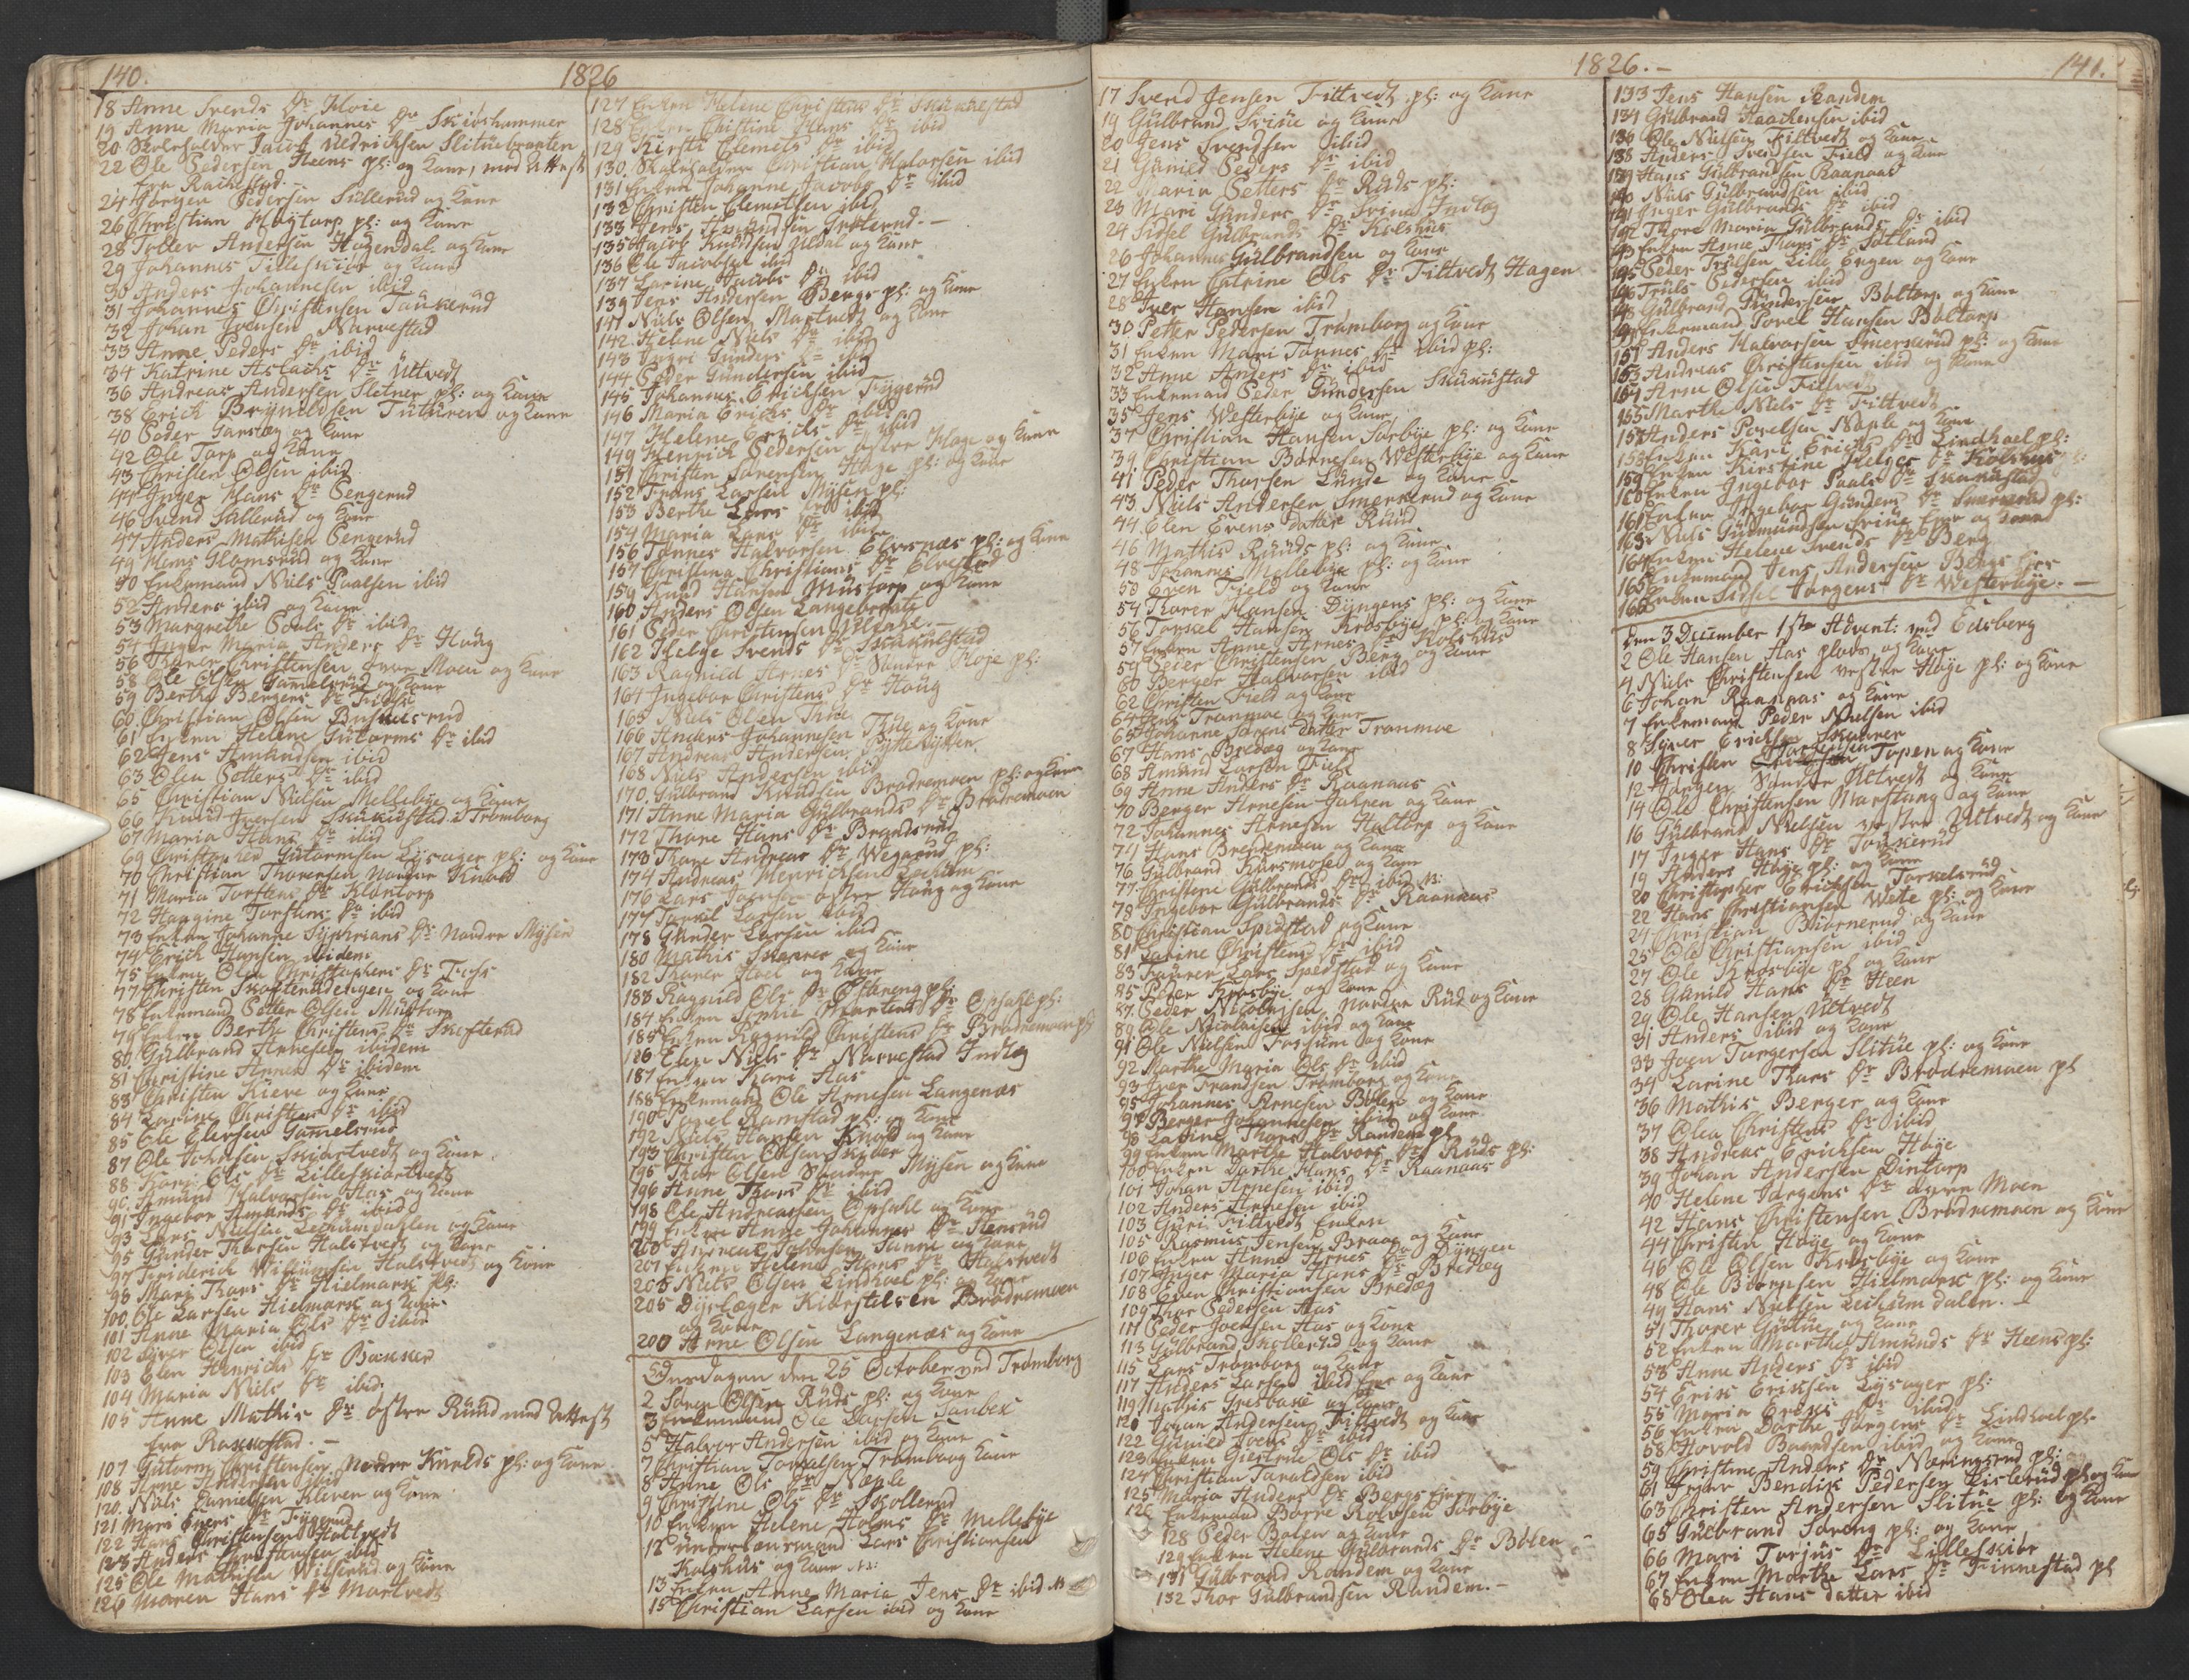 140.
1826
18 Anne Svends Dr Hoie
19 Anne Maria Johannes Dr Skibshammer
20 Skoleholder Jacob Hedrichsen Slituebraaten
22 Ole Pedersen Heens pl: og Kone, med Attest
fra Rackestad.
24 Jørgen Pedersen Sullerud og Kone
26 Christian Høytorp pl: og Kone
28 Toller Andersen Hagendal og Kone
29 Johannes Lilleskiør og Kone
30 Anders Johannesen ibid
31 Johannes Christensen Taukerud
32 Johan Ivensen Narvestad
33 Anne Peders Dr ibid
34 Katrine Aslachs Dr Ultvedt
36 Andreas Andersen Sletner pl: og Kone
38 Erick Bryngelsen Tuturen og Kone
40 Peder Garsleg og Kone
42 Ole Torp og Kone
43 Christen Olsen ibid
44 Inger Hans Dr Pengerud
46 Svend Skllerud og Kone
47 Anders Mathisen Pengerud
49 Hans Glomsrud og Kone
50 Enkemand Niels Paalsen ibid
52 Anders ibid og Kone
53 Margrethe Povels Dr ibid
54 Inger Maria Anders Dr Houg
56 Thorer Christensen øvre Moen og Kone
58 Ole Olsen Gamelsrud og Kone
59 Berthe Bergers Dr
60 Christian Olsen Buskelsrud
61 Enken Helene Gutorms Dr ibid
62 Jens Amundsen ibid
63 Olea Petters Dr ibid
65 Christian Nielsen Mellebye og Kone
66 Knud Iversen Skukustad i Trømborg
67 Maria Hans Dr ibid
69 Christopher Gutormsen Lysager pl: og Kone
70 Christian Thoresen Nordre Knold
71 Maria Torstens Dr Klontorp
72 Haagine Torstens Dr ibid
73 Enken Johanne Syphrians Dr Nordre Mysen
74 Erich Hansen ibidem
75 Enken Olea Christophers Dr Foss
77 Christen Skofterudengen og Kone
78 Enkemand Petter Olsen Mustorp
79 Enken Berthe Christens Dr Skofterud
80 Gulbrand Arnesen ibidem
81 Christine Arnes Dr ibidem
83 Christen Kirre og Kone
84 Larine Christens Dr ibid
85 Ole Elersen Gamelsrud
87 Ole Johnsen Skiørtvedt og Kone
88 Kari Ols Dr Lilleskiørtvedt
90 Amund Halvorsen Aas og Kone
91 Ingebor Amunds Dr ibid
93 Lars Nielsen Lechumdahlen og Kone
95 Gunder Thorsen Halstvedt og Kone
97 Friderich Wilhumsen Halstvedt og Kone
98 Mari Thors Dr Hielmark pl:
100 Ole Larsen Hielmark og Kone
101 Anne Maria Ols Dr ibid
102 Syver Olsen ibid
103 Elen Henrichs Dr Bakker
104 Maria Niels Dr ibid
105 Anne Mathis Dr østre Ruud med Attest
fra Rakkestad.
107 Gutorm Christensen Nedre Knolds pl: og Kone
108 Arne Andersen ibid
120 Niels Danielsen Kleven og Kone
121 Mari Svers Dr Fygerud
122 Hans Christensen Haltvedt
123 Anders Christensen ibid
125 Ole Mathisen Wilserud og Kone
126 Maren Hans Dr Martvedt
127 Enken Helene Christens Dr Skukestad
128 Enken Christine Hans Dr ibid
129 Kirsti Clemets Dr ibid
130 Skoleholder Christian Halvorsen ibid
131 Enken Johanne Jacobs Dr ibid
132 Christen Clemetsen ibid
133 Jens Amundsen Grøterud.
135 Jacob Knudsen Uldal og Kone
136 Ole Jacobsen ibid
137 Larine Jacobs Dr ibid
139 Jens Andersen Bergs pl: og Kone
141 Niels Olsen Martvedt og Kone
142 Helene Niels Dr ibid
143 Ingri Gunders Dr ibid
144 Peder Gundersen ibid
145 Johannes Erichsen Fygerud
146 Maria Erichs Dr ibid
147 Helene Erichs Dr ibid
149 Henrich Pedersen østre Hage og Kone
151 Christen Sørensen Hage pl: og Kone
152 Frans Larsen Mysen pl:
153 Berthe Lars Dr ibid
154 Maria Lars Dr ibid
156 Tønnes Halvorsen Elvesnæs pl: og Kone
157 Christina Christians Dr Elvestad
159 Knud Hansen Mustorp og Kone
160 Anders Olsen Langebraate
161 Peder Christensen
162 Helge Svends Dr Skukulstad
163 Ragnild Arnes Dr Søndre Høje pl:
164 Ingebor Christens Dr Houg
165 Niels Olsen Thue
166 Anders Johannesen Thue og Kone
167 Andreas Andersen
168 Niels Andersen ibid
170 Gulbrand Knudsen Brødremoen pl: og Kone
171 Anne Maria Gulbrands Dr Brødremoen
172 Thore Hans Dr Brandsrud
173 Thore Andreas Dr Wegerud pl:
174 Andreas Henrichsen Lechum
176 Lars Joensen østre Houg og Kone
177 Torkil Larsen ibid
178 Gunder Larsen ibid
180 Mathis Skorer og Kone
182 Thorer Hoel og Kone
183 Ragnild Ols Dr Østereng pl:
184 Enken Sophie Mortens Dr Opsahl pl:
185 Enken Ragnild Christens Dr Brødremoen pl:
186 Elen Niels Dr Narvestad Indleg
187 Enken Kari Aas
188 Enkemand Ole Arnesen Langenæs
190 Povel Ramstad pl: og Kone
192 Niels Hansen Knold og Kone
193 Christen Olsen Skibr
195 Thor Olsen Søndre Mysen og Kone
196 Anne Thors Dr ibid
198 Ole Andreassen Opsahl og Kone
199 Enken Anne Johannes Dr Rensrud
200 Andreas Johnsen Sanne og Kone
201 Enken Helene Hans Dr Halstvedt
203 Niels Olsen Lindhoel pl: og Kone
205 Dyrlæger Kiørstelsen Brødremoen
og Kone
200 Arne Olsen Langenæs og Kone
Onsdagen den 25 October ved Trømborg
2 Søren Olsen Ruds pl: og Kone
3 Enkemand Ole Larsen Taubek
5 Halvor Andersen ibid og Kone
7 Christian Torvelsen Trømborg Kone
8 Anne Ols Dr Næple
9 Christine Ols Dr Skollerud
10 Enken Helene Holms Dr Mellebye
12 underlensmand Lars Christiansen
Kolshus og Kone
13 Enken Anne Maria Jens Dr ibid
15 Christian Larsen ibid og Kone
1826.
141.
17 Svend Jensen Fittvedt pl: og Kone
19 Gulbrand Sviue og Kone
20 Jens Svendsen ibid
21 Gunild Peders Dr ibid
22 Maria Petters Dr Ruds pl:
23 Mari Gunders Dr Sviue Indleg
24 Sidsel Gulbrands Dr Kolshus
26 Johannes Gulbrandsen og Kone
27 Enken Catrine Ols Dr Fittvedt Hagen
28 Iver Hansen ibid
30 Petter Pedersen Trømborg og Kone
31 Enken Mari Tønnes Dr ibid pl:
32 Anne Anders Dr ibid
33 Enkemand Peder Gundersen Skukustad
35 Jens Westerbye og Kone
37 Christian Hansen Sørbye pl: og Kone
39 Christian Børnesen Westerbye og Kone
41 Peder Thorsen Lunde og Kone
43 Niels Andersen Smerkerud og Kone
44 Elen Evens datter Ruud
46 Mathis Ruuds pl: og Kone
48 Johannes Mellebye pl: og Kone
50 Even Field og Kone
54 Thorer Hansen Dyngens pl: og Kone
56 Torkel Hansen Krosbye pl: og Kone
57 Enken Anne Arnes Dr Kolshus
59 Peder Christensen Berg og Kone
60 Berger Halvorsen ibid
62 Christen Field og Kone
64 Jens Tranmoe og Kone
65 Johanne Sørens datter Tranmoe
67 Hans Bredeg og Kone
68 Amund Larsen Field
69 Anne Anders Dr Raanaas
70 Berger Arnesen Jahren og Kone
72 Johannes Arnesen Haltorp og Kone
74 Hans Bredemoen og Kone
76 Gulbrand Kursmose og Kone
77 Christene Gulbrands Dr ibid
78 Ingebor Gulbrands Dr Raanaas
80 Christian Spidstad og Kone
81 Larine Christens Dr ibid
83 Faurer Lars Spedstad og Kone
85 Peder Krosbye og Kone
87 Peder Nicolaisen nordre Rud og Kone
89 Ole Nicolaisen ibid og Kone
91 Ole Nielsen Forsum og Kone
92 Marthe Maria Ols Dr ibid
93 Iver Frandsen Trømborg og Kone
95 Johannes Arnesen Bølen og Kone
97 Berger Johannesen ibid og Kone
98 Larine Thors Dr Randem pl
99 Enken Marthe Halvors Dr Ruds pl:
100 Enken Dorthe Hans Dr Raanaas
101 Johan Arnesen ibid
102 Anders Arnesen ibid
103 Guri Fittvedt Enken
105 Rasmus Jensen Braae og Kone
106 Enken Anne Arnes Dr Dyngen
107 Inger Maria Hans Dr Bredeg
108 Even Christiansen Bredeg
109 Thor Pedersen Aas
111 Peder Joensen Aas og Kone
113 Gulbrand Skollerud og Kone
115 Lars Trømborg og Kone
117 Anders Larsen ibid Eier og Kone
119 Mathis Gresbake og Kone
120 Johan Andersen Fittvedt og Kone
122 Gunild Joens Dr ibid
123 Enken Giertrue Ols Dr ibid
124 Christian Taraldsen ibid
125 Maria Anders Dr Bergs Eier
126 Enkemand Børre Rolvsen Sørbye
128 Peder Bølen og Kone
129 Enken Helene Gulbrands Dr Bølen
131 Gulbrand Randem og Kone
132 Thor Gulbrandsen Randem.
133 Jens Hansen Randem
134 Gulbrand Haachensen ibid
136 Ole Nielsen Fittvedt og Kone
138 Anders Svendsen Field og Kone
139 Hans Gulbrandsen Raanaas
140 Niels Gulbrandsen ibid
141 Inger Gulbrands Dr ibid
142 Thore Maria Gulbrands Dr ibid
143 Enken Anne Thors Dr Jotland
145 Peder Trulsen Lille Engen og Kone
146 Truls Pedersen ibid
148 Gulbrand Gundersen Bøltorp og Kone
149 Enkemand Povel Hansen Bøltorp
151 Anders Halvorsen Smerkerud pl: og Kone
153 Andreas Christensen ibid og Kone
154 Arne Olsen Fittvedt
155 Marthe Niels Dr Fittvedt
157 Anders Povelsen Næple og Kone
158 Enken Kari Erichs Dr Lindhoel pl:
159 Enken Kirstine Helges Dr Kolshus
160 Enken Ingebor Paals Dr Skukustad
161 Enken Ingebor Gunders Dr Smerkerud pl:
163 Niels Gudmundsen Sviue Eier og Kone
164 Enken Helene Svends Dr Berg
165 Enkemand Jens Andersen Bergs Eier
166 Enken Sidsel Jørgens Dr Westerbye.
Den 3 December 1ste Advent: ved Eidsberg
2 Ole Hansen Aas plads og Kone
4 Niels Christensen vestre Høje pl: og Kone
6 Johan Raanaas og Kone
7 Enkemand Peder Nielsen ibid
8 Syver Erichsen Skourer
10 Christen Jørgensen Topen og Kone
12 Jørgen Søndre Ultvedt og Kone
14 Ole Christensen Harstang og Kone
16 Gulbrand Nielsen vestre Ultvedt og Kone
17 Inger Hans Dr Toukerud
19 Anders Høje pl: og Kone
20 Christopher Erichsen Torkelsrud
22 Hans Christiansen Wete pl: og Kone
24 Christian Biørnerud og Kone
25 Ole Christiansen ibid
27 Ole Krosbye pl og Kone
28 Gunild Hans Dr Heen
29 Ole Hansen Ultvedt
31 Anders ibid og Kone
33 Joen Torgersen Slitue pl: og Kone
34 Larine Thors Dr Brødremoen pl
36 Mathis Berger og Kone
37 Olea Christens Dr ibid
38 Andreas Erichsen Høje
39 Johan Andersen Dintorp
40 Helene Jørgens Dr øvre Moen
42 Hans Christensen Brødremoen og Kone
44 Christen Høje og Kone
46 Ole Olsen Kirkebye og Kone
48 Ole Biørnsen Hielmark pl: og Kone
49 Hans Nielsen Lechum dalen.
51 Thorer Gutue og Kone
52 Enken Marthe Amunds Dr Heens pl:
53 Anne Anders Dr ibid
54 Erik Eriksen Lysager pl:
55 Maria Eriks Dr ibid
56 Enken Dorthe Jørgens Dr Lindhoel pl.
58 Hovold Baardsen ibid og Kone
59 Christine Anders Dr Næringsrud pl:
61 Iver Bendik Pedersen Lislerud pl og Kone
63 Christen Andersen Slitue pl: og Kone
65 Gulbrand Søreng pl: og Kone
66 Mari Torjus Dr Lilleskibr
67 Enken Marthe Lars Dr Finnestad pl
68 Olea Hans datter ibid